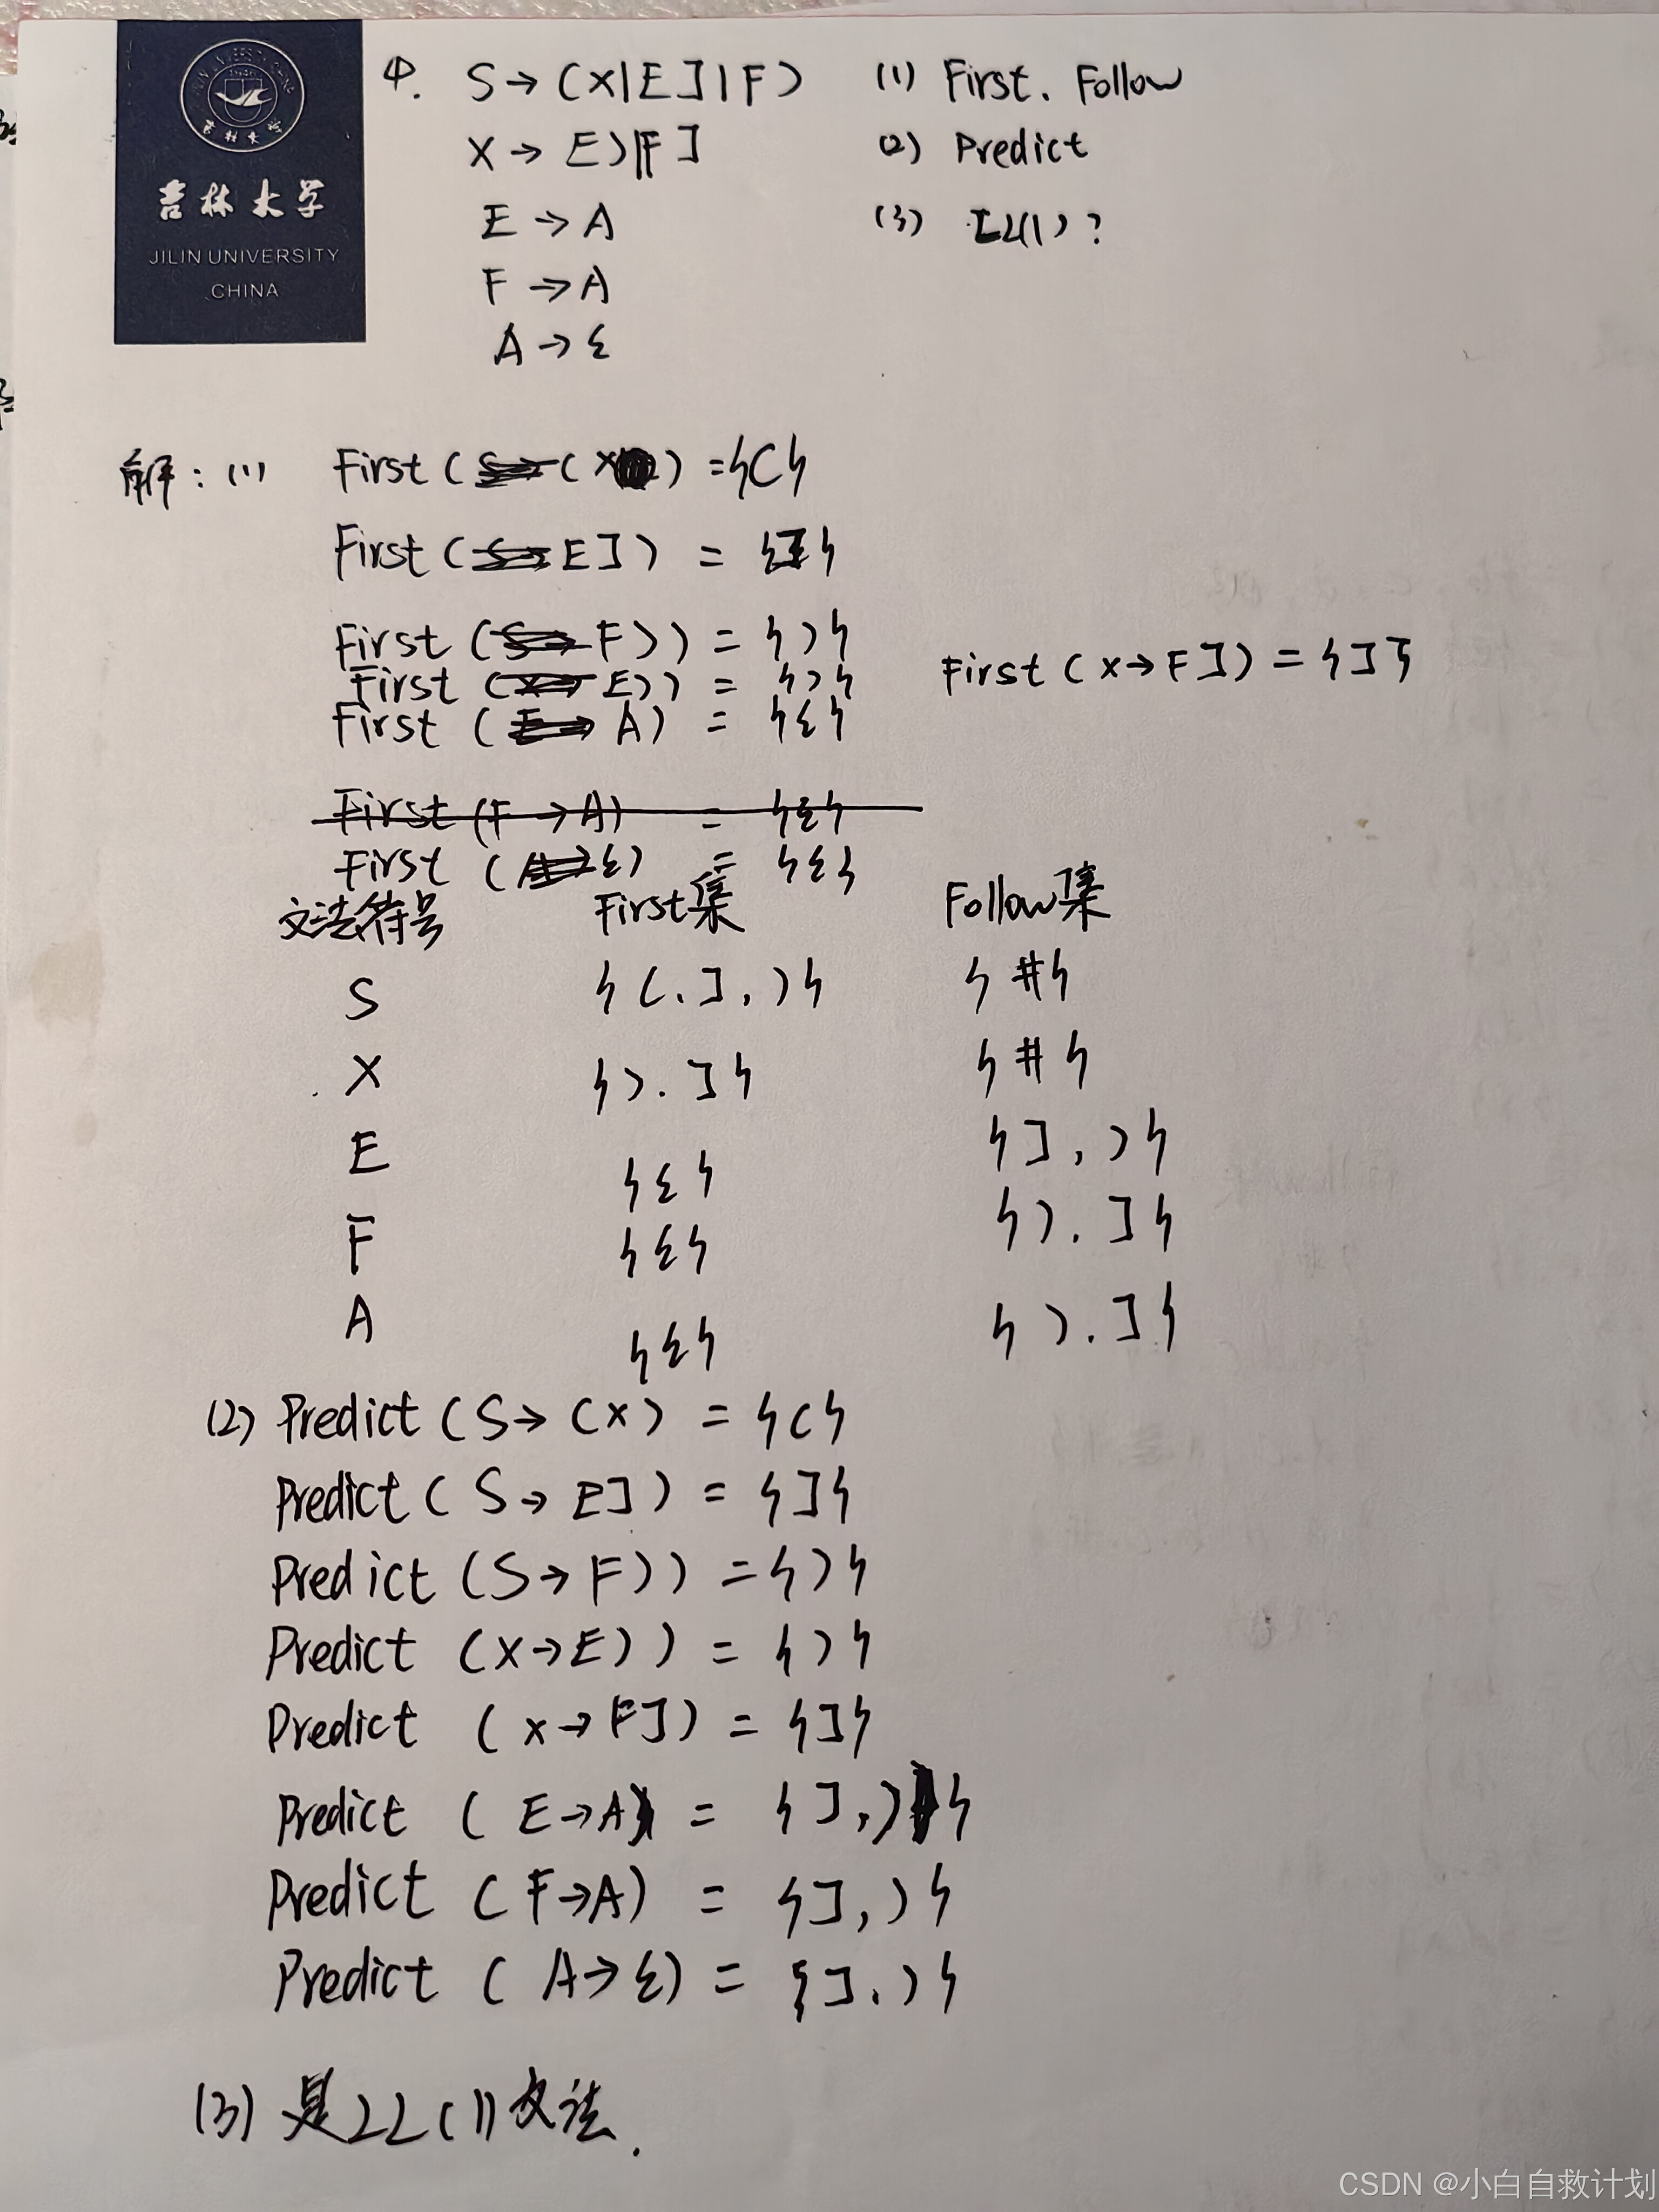 吉林大学
JILIN UNIVERSITY
CHINA
4. S→(X|E]|F) (1) First. Follow
X→E)|F] (2) Predict
E→A (3) LL(1)?
F→A
A→ε
解:(1) First((X) = {(}
First(E]) = {]}
First(F)) = {)}
First(E)) = {)} First(X→F]) = {]}
First(A) = {ε}
First(F→A) = {ε}
First(ε) = {ε}
文法符号 First集 Follow集
S {(.].)} {#}
X {).]} {#}
E {ε} {],)}
F {ε} {).]}
A {ε} {).]}
(2) Predict(S→(X) = {(}
Predict(S→E]) = {]}
Predict(S→F)) = {)}
Predict(X→E)) = {)}
Predict(X→F]) = {]}
Predict(E→A) = {],)}
Predict(F→A) = {],)}
Predict(A→ε) = {].)}
(3) 是LL(1)文法.
CSDN @小白自救计划